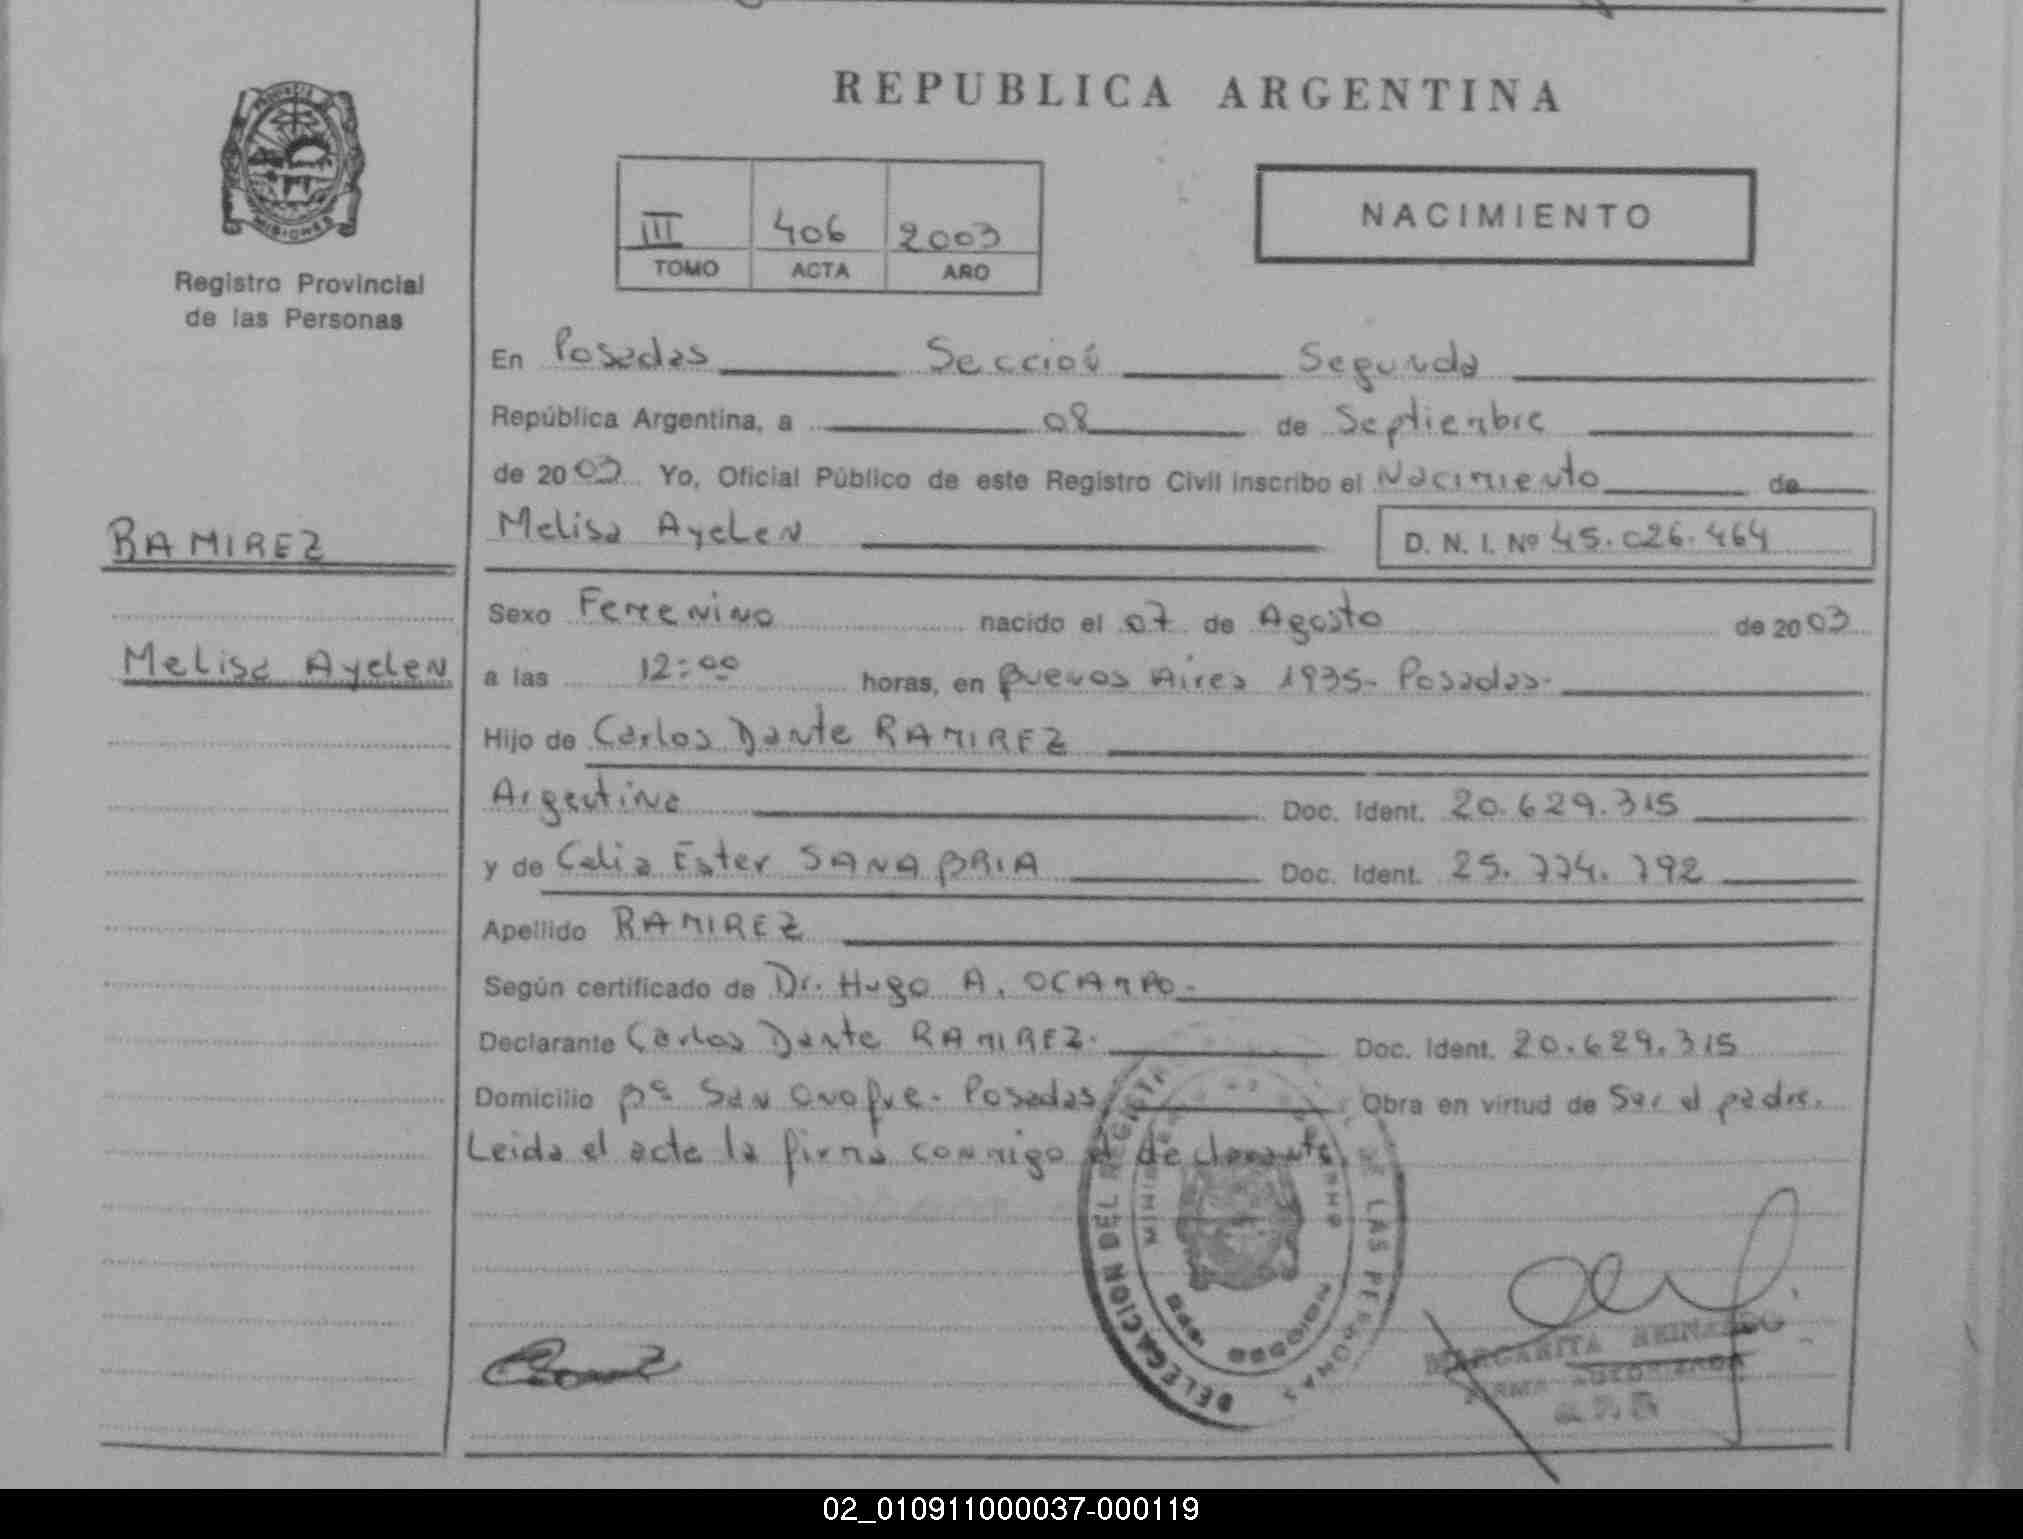 REPUBLICA ARGENTINA
PROVINCIA DE MISIONES
Registro Provincial
de las Personas
III 406 2003
TOMO ACTA AÑO
NACIMIENTO
En Posadas Sección Segunda
República Argentina, a 08 de Septiembre
de 2003 Yo, Oficial Público de este Registro Civil inscribo el Nacimiento de
RAMIREZ
Melisa Ayelen D. N. I. Nº 45.026.464
Sexo Femenino nacido el 07 de Agosto de 2003
Melisa Ayelen
a las 12:00 horas, en Buenos Aires 1935- Posadas-
Hijo de Carlos Dante RAMIREZ
Argentina Doc. Ident. 20.629.315
y de Celia Ester SANABRIA Doc. Ident. 25.774.792
Apellido RAMIREZ
Según certificado de Dr. Hugo A. OCAMPO-
Declarante Carlos Dante RAMIREZ- Doc. Ident. 20.629.315
Domicilio Bº San Onofre- Posadas Obra en virtud de Ser el padre.
Leida el acta la firma conmigo el declarante.
DELEGACION DEL REGISTRO DE LAS PERSONAS
POSADAS
MARGARITA
FIRMA AUTORIZADA
02_010911000037-000119